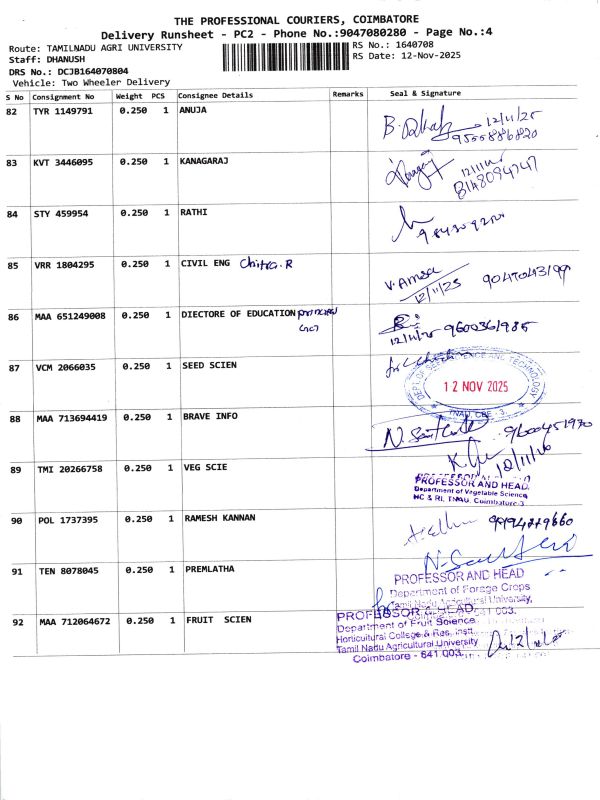 THE PROFESSIONAL COURIERS, COIMBATORE
Delivery Runsheet - PC2 - Phone No.:9047080280 - Page No.:4
Route: TAMILNADU AGRI UNIVERSITY RS No.: 1640708
Staff: DHANUSH RS Date: 12-Nov-2025
DRS No.: DCJB164070804
Vehicle: Two Wheeler Delivery
S No Consignment No Weight PCS Consignee Details Remarks Seal & Signature
82 TYR 1149791 0.250 1 ANUJA
12/11/25
9555886820
83 KVT 3446095 0.250 1 KANAGARAJ
8148094747
84 STY 459954 0.250 1 RATHI
85 VRR 1804295 0.250 1 CIVIL ENG Chitra.R
V. Amsa 9047043199
12/11/25
86 MAA 651249008 0.250 1 DIECTORE OF EDUCATION
12/11/25 9600361985
87 VCM 2066035 0.250 1 SEED SCIEN
DEPT. OF SEED SCIENCE AND TECHNOLOGY
12 NOV 2025
TNAU, CBE - 3.
88 MAA 713694419 0.250 1 BRAVE INFO
9600451970
89 TMI 20266758 0.250 1 VEG SCIE
PROFESSOR AND HEAD,
Department of Vegetable Science
HC & RI, TNAU, Coimbatore-3
90 POL 1737395 0.250 1 RAMESH KANNAN
91 TEN 8078045 0.250 1 PREMLATHA
PROFESSOR AND HEAD
Department of Forage Crops
Tamil Nadu Agricultural University,
92 MAA 712064672 0.250 1 FRUIT SCIEN
PROFESSOR & HEAD,
Department of Fruit Science
Horticultural College & Res. Instt.
Tamil Nadu Agricultural University
Coimbatore - 641 003.